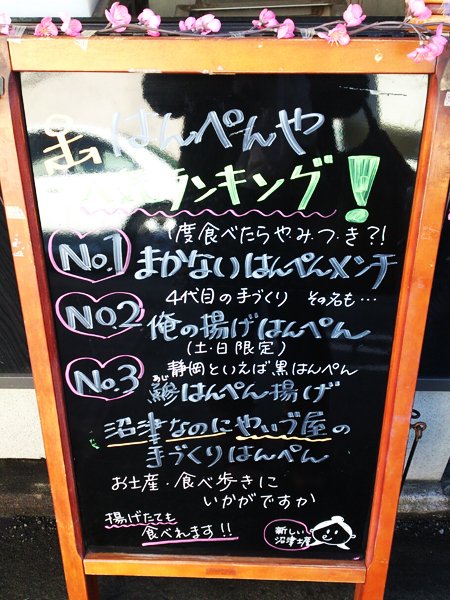 はんぺんや
ランキング!
No.1
1度食べたらや・み・つ・き?!
まかないはんぺんメンチ
No.2
4代目の手づくり その名も…
俺の揚げはんぺん
(土・日限定)
No.3
静岡といえば黒はんぺん
あじ
鯵はんぺん揚げ
沼津なのにやいづ屋の
手づくりはんぺん
お土産・食べ歩きに
いかがですか
揚げたても
食べれます!!
新しい
沼津土産